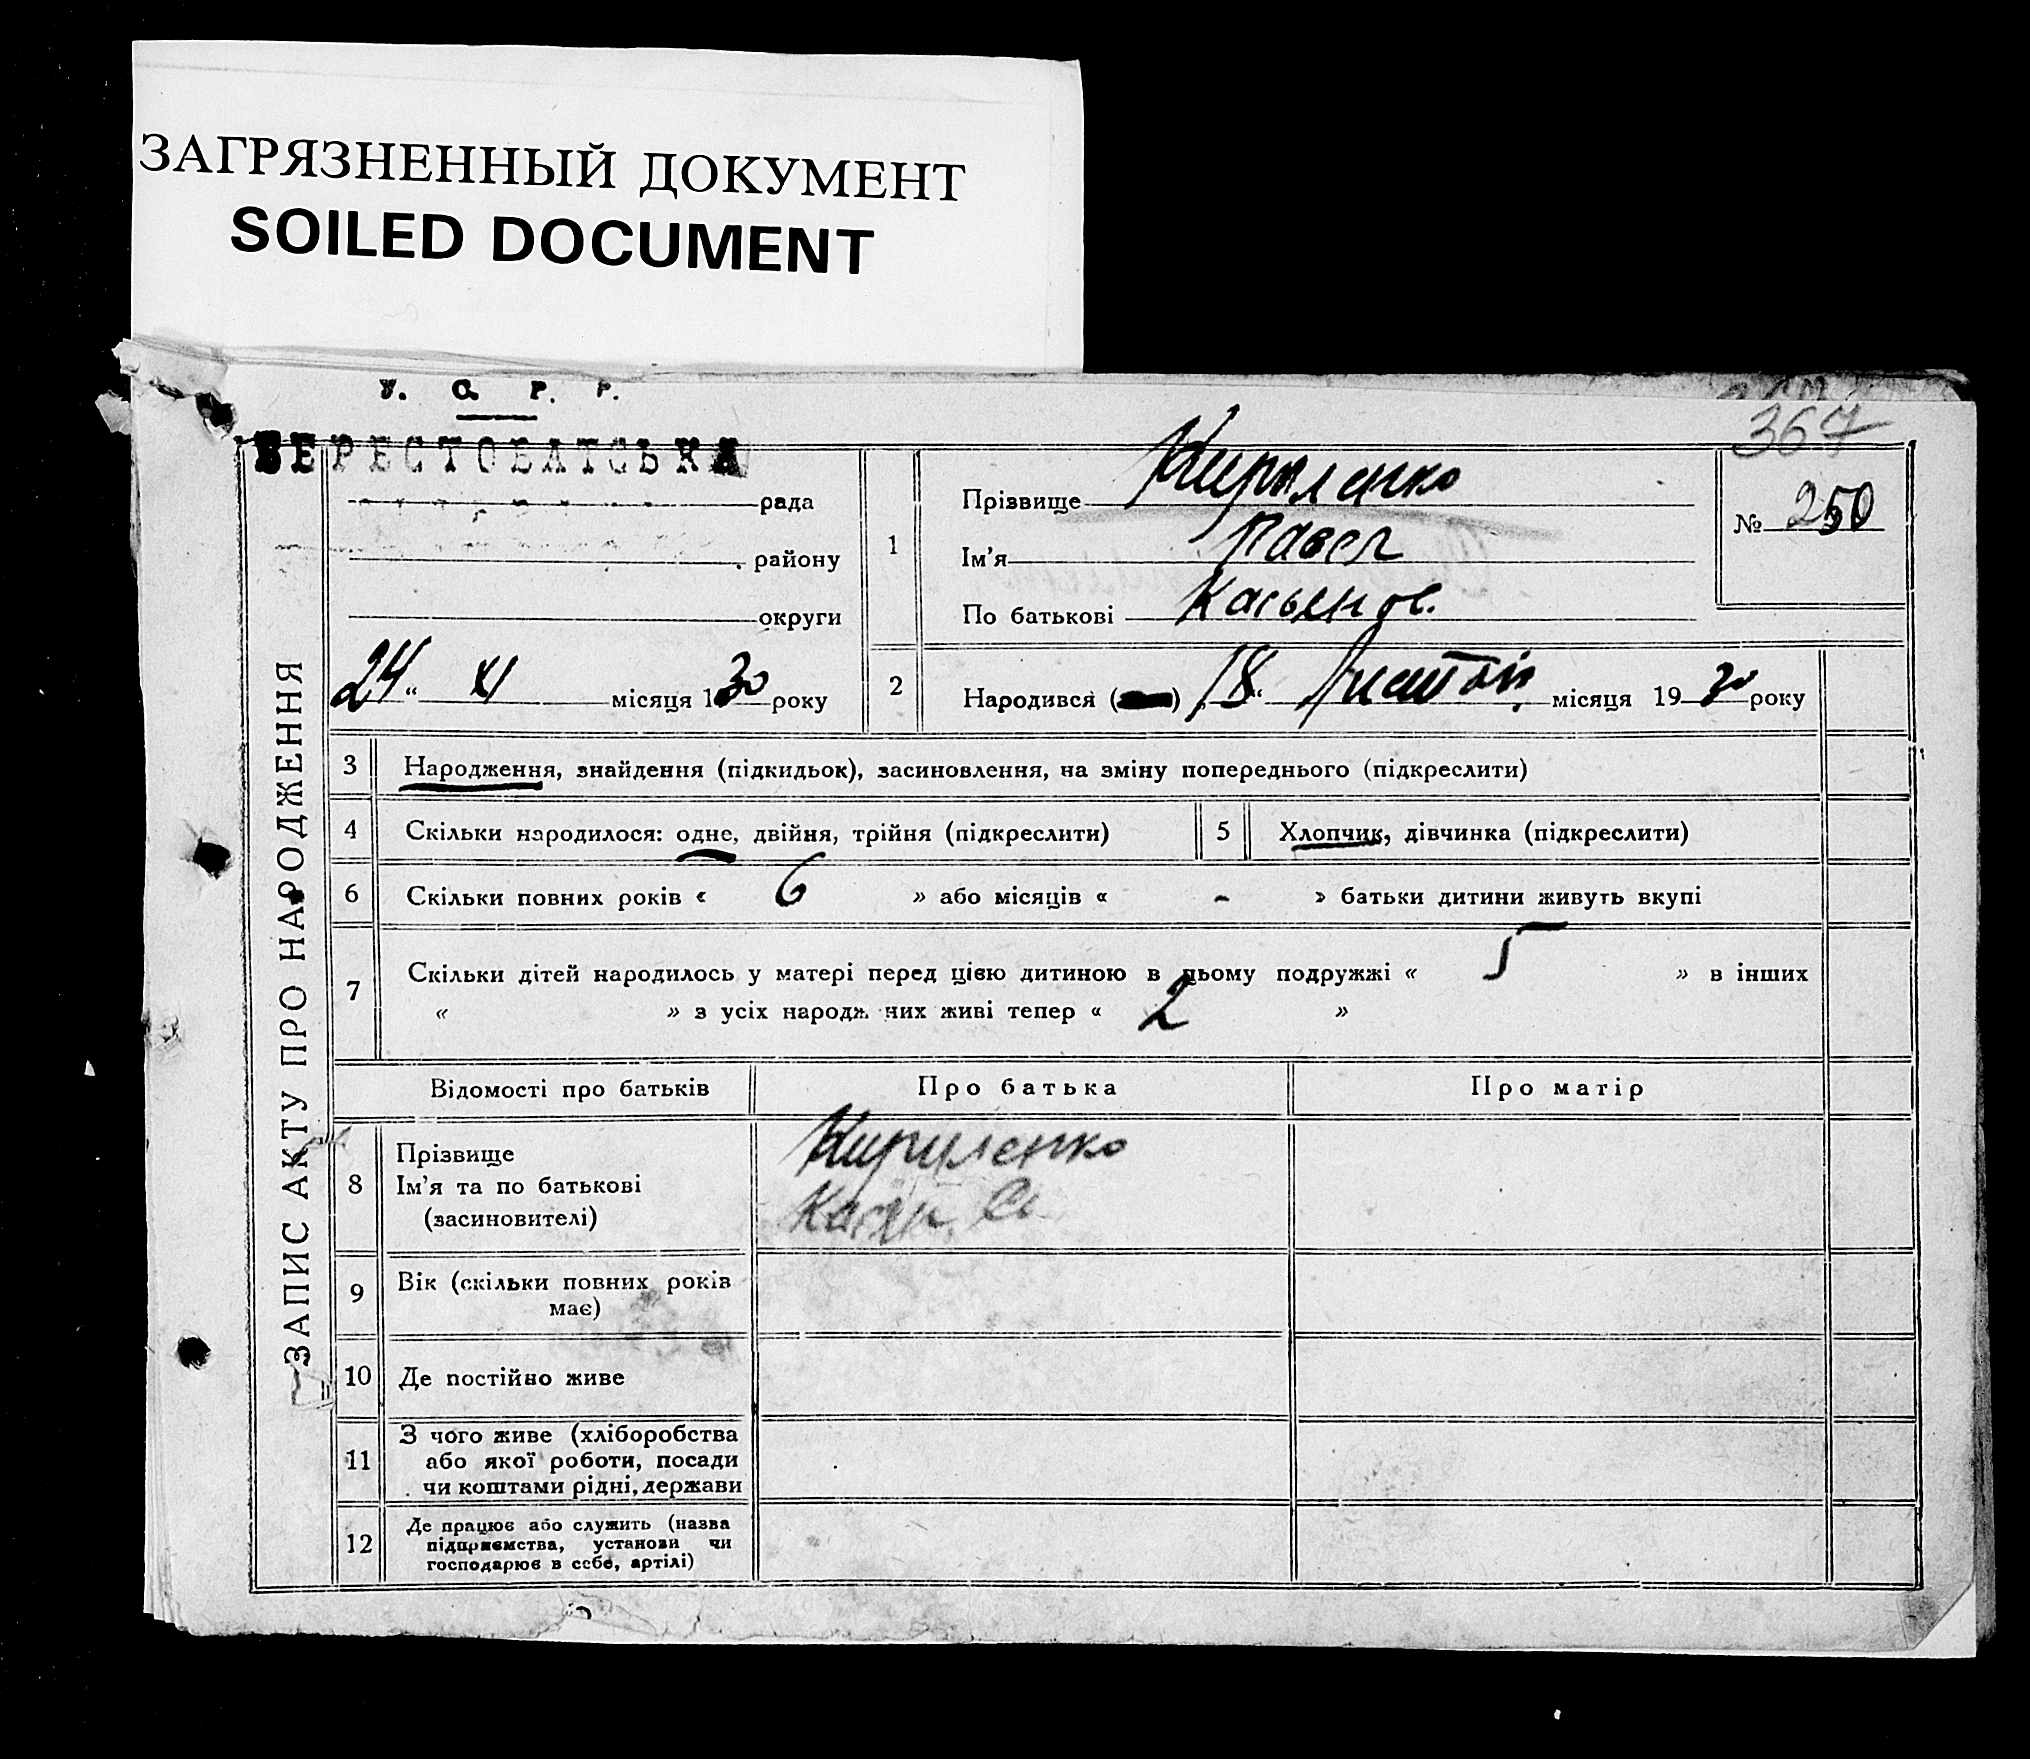 ЗАГРЯЗНЕННЫЙ ДОКУМЕНТ
SOILED DOCUMENT
У. С. Р. Р.
БЕРЕСТОВАТСЬКА
рада
району
округи
24 " XI місяця 1930 року
367
№ 250
1
Прізвище Кириленко
Ім'я Павел
По батькові Касьянов.
2
Народився ( ) 18 " місяця 1930 року
ЗАПИС АКТУ ПРО НАРОДЖЕННЯ
3 Народження, знайдення (підкидьок), засиновлення, на зміну попереднього (підкреслити)
4 Скільки народилося: одне, двійня, трійня (підкреслити)
5 Хлопчик, дівчинка (підкреслити)
6 Скільки повних років « 6 » або місяців « - » батьки дитини живуть вкупі
7 Скільки дітей народилось у матері перед цією дитиною в цьому подружжі « 5 » в інших
« » з усіх народж них живі тепер « 2 »
Відомості про батьків
Про батька
Про матір
8 Прізвище
Ім'я та по батькові
(засиновителі)
Кириленко
9 Вік (скільки повних років
має)
10 Де постійно живе
11 З чого живе (хліборобства
або якої роботи, посади
чи коштами рідні, держави
12 Де працює або служить (назва
підприємства, установи чи
господарює в себе, артілі)